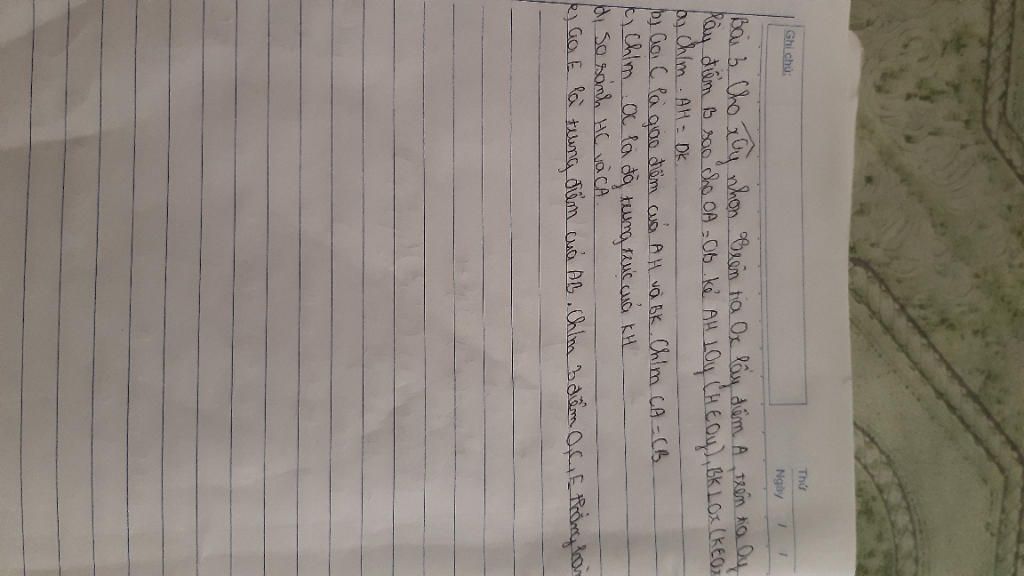 Ghi chú:
Thứ
Ngày / /
Bài 3 Cho xOy nhọn Trên tia Ox lấy điểm A, trên tia Oy
lấy điểm B sao cho OA = OB. kẻ AH ⊥ Oy (H ∈ Oy), BK ⊥ Ox (K ∈ Ox
a, Chlm. AH = DK
b) Gọi C là giao điểm của AH và BK Chlm CA = CB
c, Chlm. OC là đg trung trực của KH
d, So sánh HC và CA
e, Gọi E là trung điểm của AB, Chlm 3 điểm O, C, E thẳng hàn